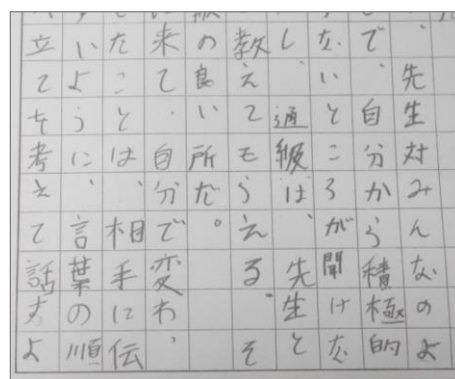 、先生対みんなのよ
で、自分から積極的
ない、ところが聞けな
し、通級は、先生と
教えてもらえる。そ
の良い所だ。
来て、自分で変わっ
たことは、相手に伝
いように、言葉の順
立てを考えて話すよ